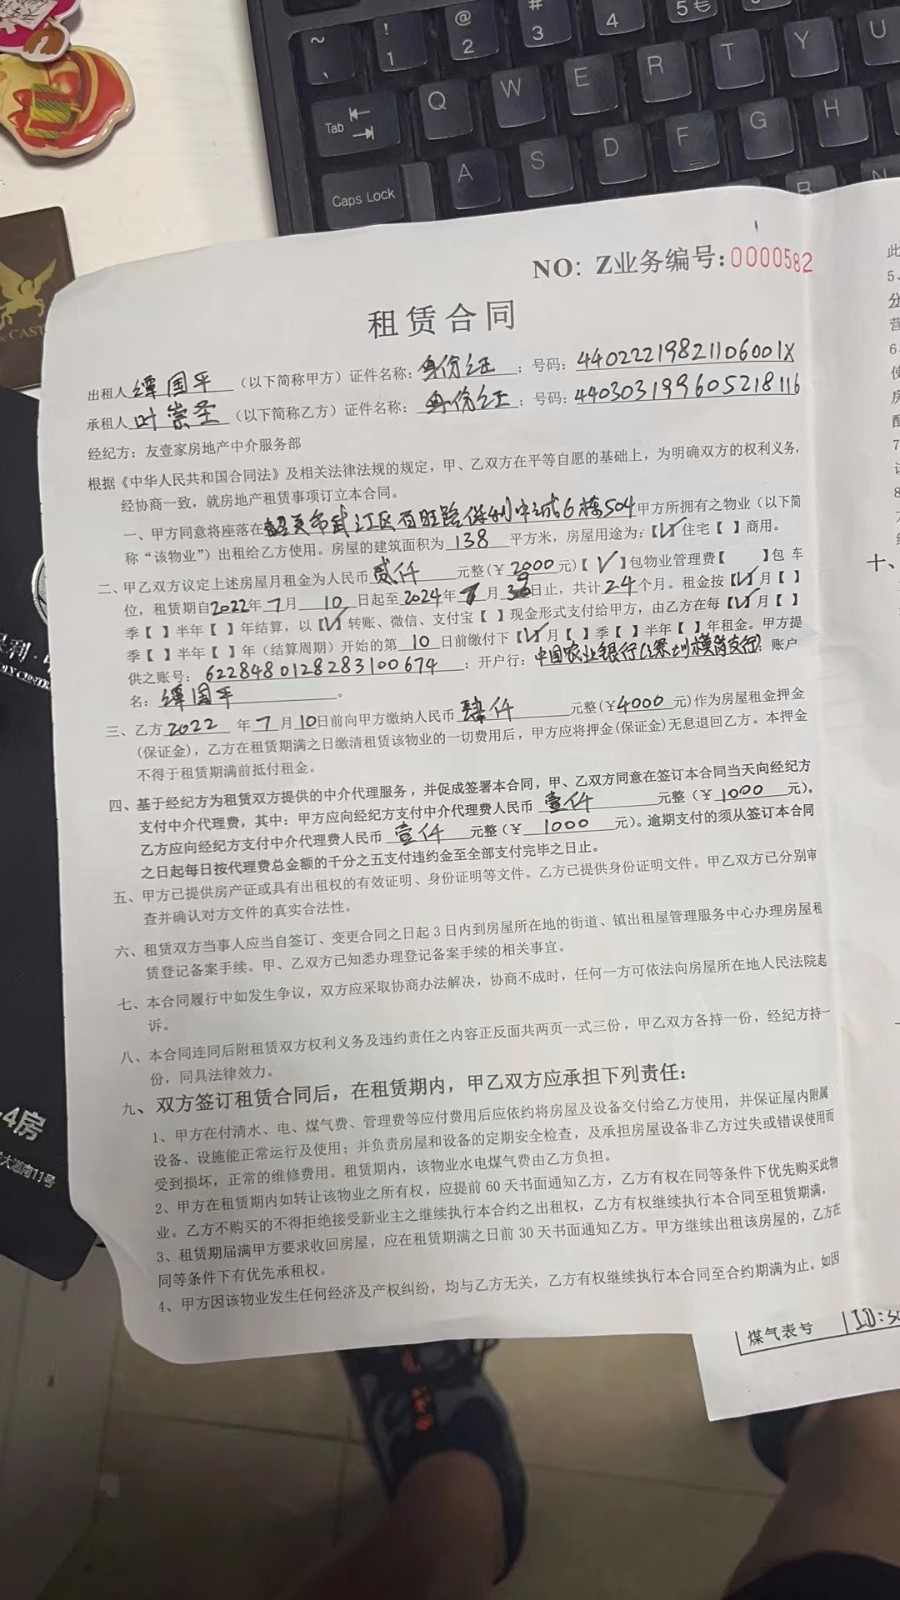 ~
!
@
#
5€
`
1
2
3
4
Tab
Q
W
E
R
T
Y
U
Caps Lock
A
S
D
F
G
H
NO: Z业务编号:0000582
租赁合同
出租人 谭国平 (以下简称甲方)证件名称: 身份证 ;号码: 44022219821106001X
承租人 叶崇圣 (以下简称乙方)证件名称: 身份证 ;号码: 440303199605218116
经纪方:友壹家房地产中介服务部
根据《中华人民共和国合同法》及相关法律法规的规定,甲、乙双方在平等自愿的基础上,为明确双方的权利义务,
经协商一致,就房地产租赁事项订立本合同。
一、甲方同意将座落在韶关市武江区百旺路保利中城6栋504甲方所拥有之物业(以下简
称“该物业”)出租给乙方使用。房屋的建筑面积为 138 平方米,房屋用途为:【✓】住宅【 】商用。
二、甲乙双方议定上述房屋月租金为人民币 贰仟 元整(¥ 2000 元)【 ✓ 】包物业管理费【 】包 车
位,租赁期自2022年 7 月 10 日起至 2024年 月 日止,共计 24 个月。租金按【✓】月【 】
季【 】半年【 】年结算,以【✓】转账、微信、支付宝【 】现金形式支付给甲方,由乙方在每【✓】月【 】
季【 】半年【 】年(结算周期)开始的第 10 日前缴付下【✓】月【 】季【 】半年【 】年租金。甲方提
供之账号: 6228480128283100674 ;开户行: 中国农业银行(深圳横岗支行);账户
名: 谭国平 。
三、乙方 2022 年 7 月 10日前向甲方缴纳人民币 肆仟 元整(¥4000 元)作为房屋租金押金
(保证金),乙方在租赁期满之日缴清租赁该物业的一切费用后,甲方应将押金(保证金)无息退回乙方。本押金
不得于租赁期满前抵付租金。
四、基于经纪方为租赁双方提供的中介代理服务,并促成签署本合同,甲、乙双方同意在签订本合同当天向经纪方
支付中介代理费,其中:甲方应向经纪方支付中介代理费人民币 壹仟 元整(¥ 1000 元)。
乙方应向经纪方支付中介代理费人民币 壹仟 元整(¥ 1000 元)。逾期支付的须从签订本合同
之日起每日按代理费总金额的千分之五支付违约金至全部支付完毕之日止。
五、甲方已提供房产证或具有出租权的有效证明、身份证明等文件。乙方已提供身份证明文件。甲乙双方已分别审
查并确认对方文件的真实合法性。
六、租赁双方当事人应当自签订、变更合同之日起 3 日内到房屋所在地的街道、镇出租屋管理服务中心办理房屋租
赁登记备案手续。甲、乙双方已知悉办理登记备案手续的相关事宜。
七、本合同履行中如发生争议,双方应采取协商办法解决,协商不成时,任何一方可依法向房屋所在地人民法院起
诉。
八、本合同连同后附租赁双方权利义务及违约责任之内容正反面共两页一式三份,甲乙双方各持一份,经纪方持一
份,同具法律效力。
九、双方签订租赁合同后,在租赁期内,甲乙双方应承担下列责任:
1、甲方在付清水、电、煤气费、管理费等应付费用后应依约将房屋及设备交付给乙方使用,并保证屋内附属
设备、设施能正常运行及使用;并负责房屋和设备的定期安全检查,及承担房屋设备非乙方过失或错误使用而
受到损坏,正常的维修费用。租赁期内,该物业水电煤气费由乙方负担。
2、甲方在租赁期内如转让该物业之所有权,应提前 60 天书面通知乙方,乙方有权在同等条件下优先购买此物
业。乙方不购买的不得拒绝接受新业主之继续执行本合约之出租权,乙方有权继续执行本合同至租赁期满。
3、租赁期届满甲方要求收回房屋,应在租赁期满之日前 30 天书面通知乙方。甲方继续出租该房屋的,乙方在
同等条件下有优先承租权。
4、甲方因该物业发生任何经济及产权纠纷,均与乙方无关,乙方有权继续执行本合同至合约期满为止。如因
此
5、
分
营
6、
使
房
7
8
十、
煤气表号
CAST
-4房
大道南11号